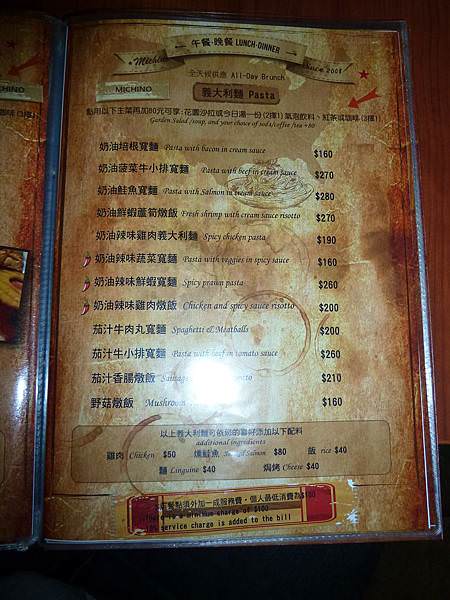 午餐·晚餐 LUNCH·DINNER
Since 2008
全天候供應 All-Day Brunch
MICHINO
義大利麵 Pasta
點用以下主菜再加80元可享:花園沙拉或今日湯一份(2擇1) 氣泡飲料、紅茶或咖啡(3擇1)
Garden Salad /soup, and your choice of soda/coffee /tea +80
奶油培根寬麵 Pasta with bacon in cream sauce $160
奶油菠菜牛小排寬麵 Pasta with beef in cream sauce $270
奶油鮭魚寬麵 Pasta with Salmon in cream sauce $280
奶油鮮蝦蘆筍燉飯 Fresh shrimp with cream sauce risotto $270
奶油辣味雞肉義大利麵 Spicy chicken pasta $190
奶油辣味蔬菜寬麵 Pasta with veggies in spicy sauce $160
奶油辣味鮮蝦寬麵 Spicy prawn pasta $260
奶油辣味雞肉燉飯 Chicken and spicy sauce risotto $200
茄汁牛肉丸寬麵 Spaghetti & Meatballs $200
茄汁牛小排寬麵 Pasta with beef in tomato sauce $260
茄汁香腸燉飯 $210
野菇燉飯 Mushroom $160
以上義大利麵可依您的喜好添加以下配料
additional ingredients
雞肉 Chicken $50 燻鮭魚 Smoked Salmon $80 飯 rice $40
麵 Linguine $40 焗烤 Cheese $40
餐點須外加一成服務費,個人最低消費為$100
There is a minimum charge of $100
service charge is added to the bill